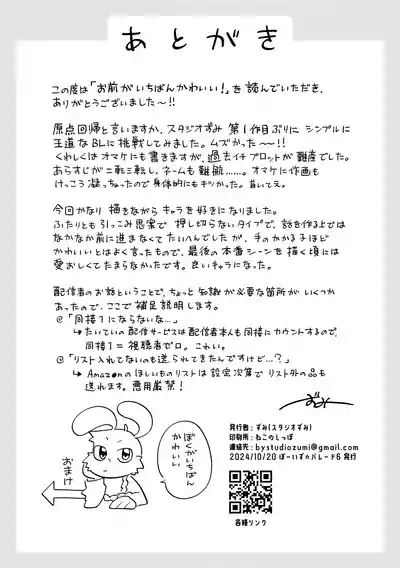 あとがき
この度は「お前がいちばんかわいい!」を読んでいただき、
ありがとうございました〜!!
原点回帰と言いますか、スタジオずみ 第1作目ぶりに シンプルに
王道なBLに挑戦してみました。ムズかった〜〜!!
くわしくはオマケにも書きますが、過去イチプロットが難産でした。
あらすじが二転三転し、ネームも難航……。オマケに作画も
けっこう凝っちゃったので身体的にもキツかった。首いてえ。
今回かなり描きながらキャラを好きになりました。
ふたりとも引っこみ思案で押し切らないタイプで、話を作る上では
なかなか前に進まなくてたいへんでしたが、手のかかる子ほど
かわいいとはよく言ったもので、最後の本番シーンを描く頃には
愛おしくてたまらなかったです。良いキャラになった。
配信者のお話ということで、ちょっと知識が必要な箇所がいくつか
あったので、ここで補足説明します。
@「同接1にならないな…」
↳たいていの配信サービスは配信者本人も同接にカウントするので、
同接1=視聴者ゼロ。これい。
@「リスト入れてないのも送られてきたんですけど…?」
↳Amazonのほしいものリストは設定次第でリスト外の品も
送れます。悪用厳禁!
ぼくがいちばん
かわいい
おまけ
発行者:ずみ(スタジオずみ)
印刷所:ねこのしっぽ
連絡先:bystudiozumi@gmail.com
2024/10/20 ぼーいず☆パレード6 発行
各種リンク